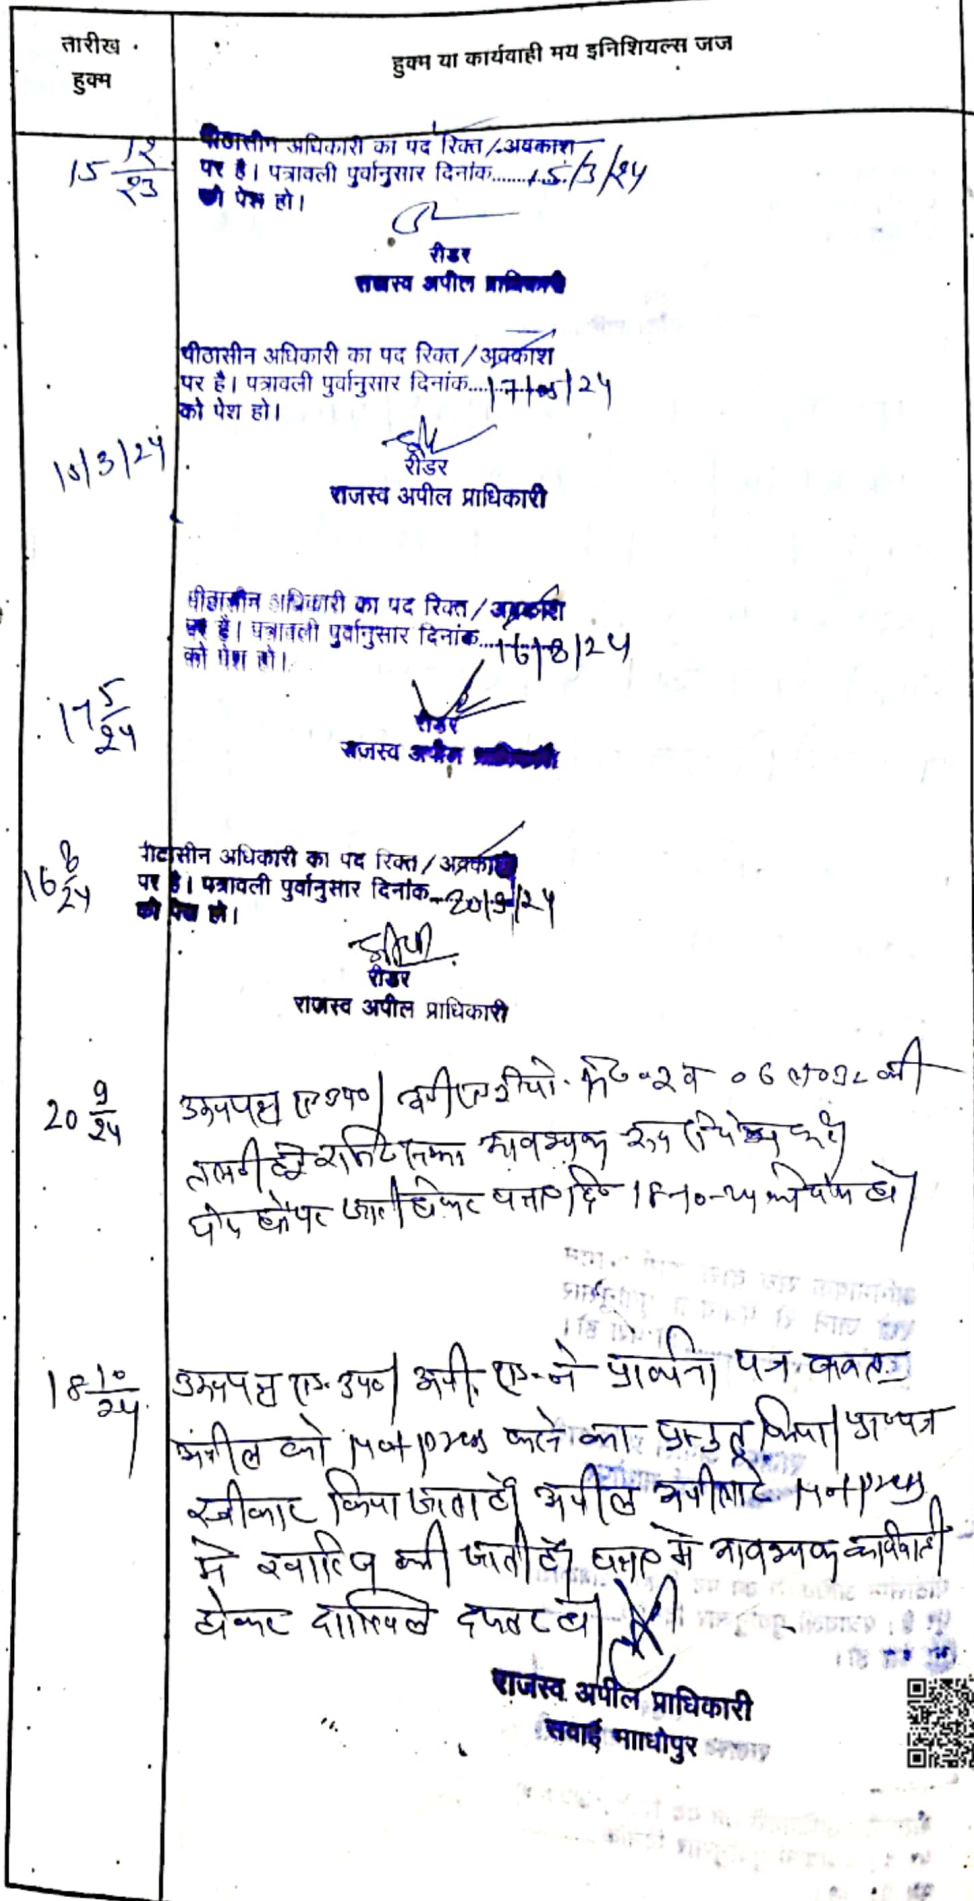 तारीख
हुक्म
हुक्म या कार्यवाही मय इनिशियल्स जज
15 12/23
पीठासीन अधिकारी का पद रिक्त/अवकाश
पर है। पत्रावली पुर्वानुसार दिनांक........15/3/24
को पेश हो।
रीडर
राजस्व अपील प्राधिकारी
15/3/24
पीठासीन अधिकारी का पद रिक्त/अवकाश
पर है। पत्रावली पुर्वानुसार दिनांक........17/05/24
को पेश हो।
रीडर
राजस्व अपील प्राधिकारी
17 5/24
पीठासीन अधिकारी का पद रिक्त/अवकाश
पर है। पत्रावली पुर्वानुसार दिनांक........16/8/24
को पेश हो।
रीडर
राजस्व अपील प्राधिकारी
16 8/24
पीठासीन अधिकारी का पद रिक्त/अवकाश
पर है। पत्रावली पुर्वानुसार दिनांक....20/9/24
को पेश हो।
रीडर
राजस्व अपील प्राधिकारी
20 9/24
उभयपक्ष एड० उप०। व 06 की
आवश्यक रूप
जारी होकर पत्रा० दि० 18-10-24 को पेश हो।
18 10/24
उभयपक्ष एड. उप०। अपी. एड. ने प्रार्थना पत्र बाबत
अपील को करने का प्रस्तुत किया। प्रा०पत्र
स्वीकार किया जाता है। अपील अपीलांट
में खारिज की जाती है। पत्रा० में आवश्यक कार्यवाही
होकर दाखिल दफ्तर हो।
राजस्व अपील प्राधिकारी
सवाई माधोपुर